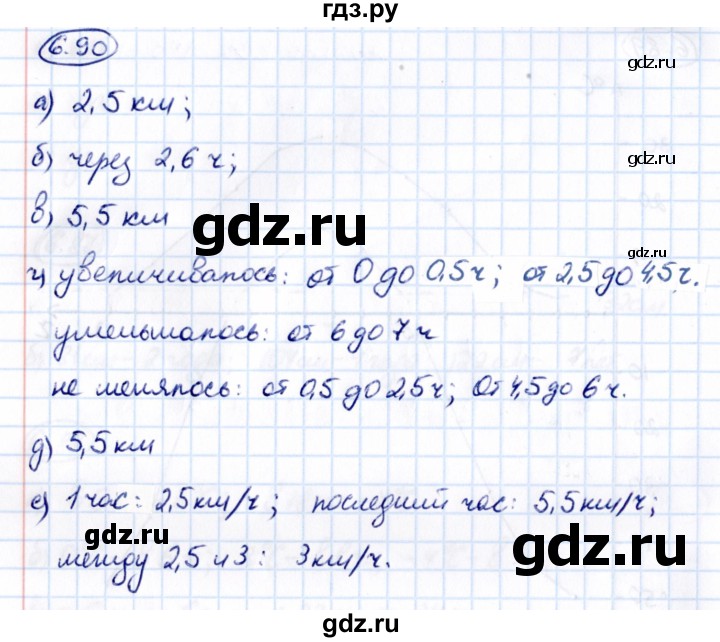 гдз.ру
6.90
gdz.ru
а) 2,5 км;
б) через 2,6 ч;
gdz.ru
в) 5,5 км
gdz.ru
gdz.ru
г) увеличивалось: от 0 до 0,5 ч; от 2,5 до 4,5 ч.
уменьшалось: от 6 до 7 ч
не менялось: от 0,5 до 2,5 ч; от 4,5 до 6 ч.
д) 5,5 км
е) 1 час: 2,5 км/ч; последний час: 5,5 км/ч;
gdz.ru
gdz.ru
между 2,5 и 3: 3 км/ч.
gdz.ru